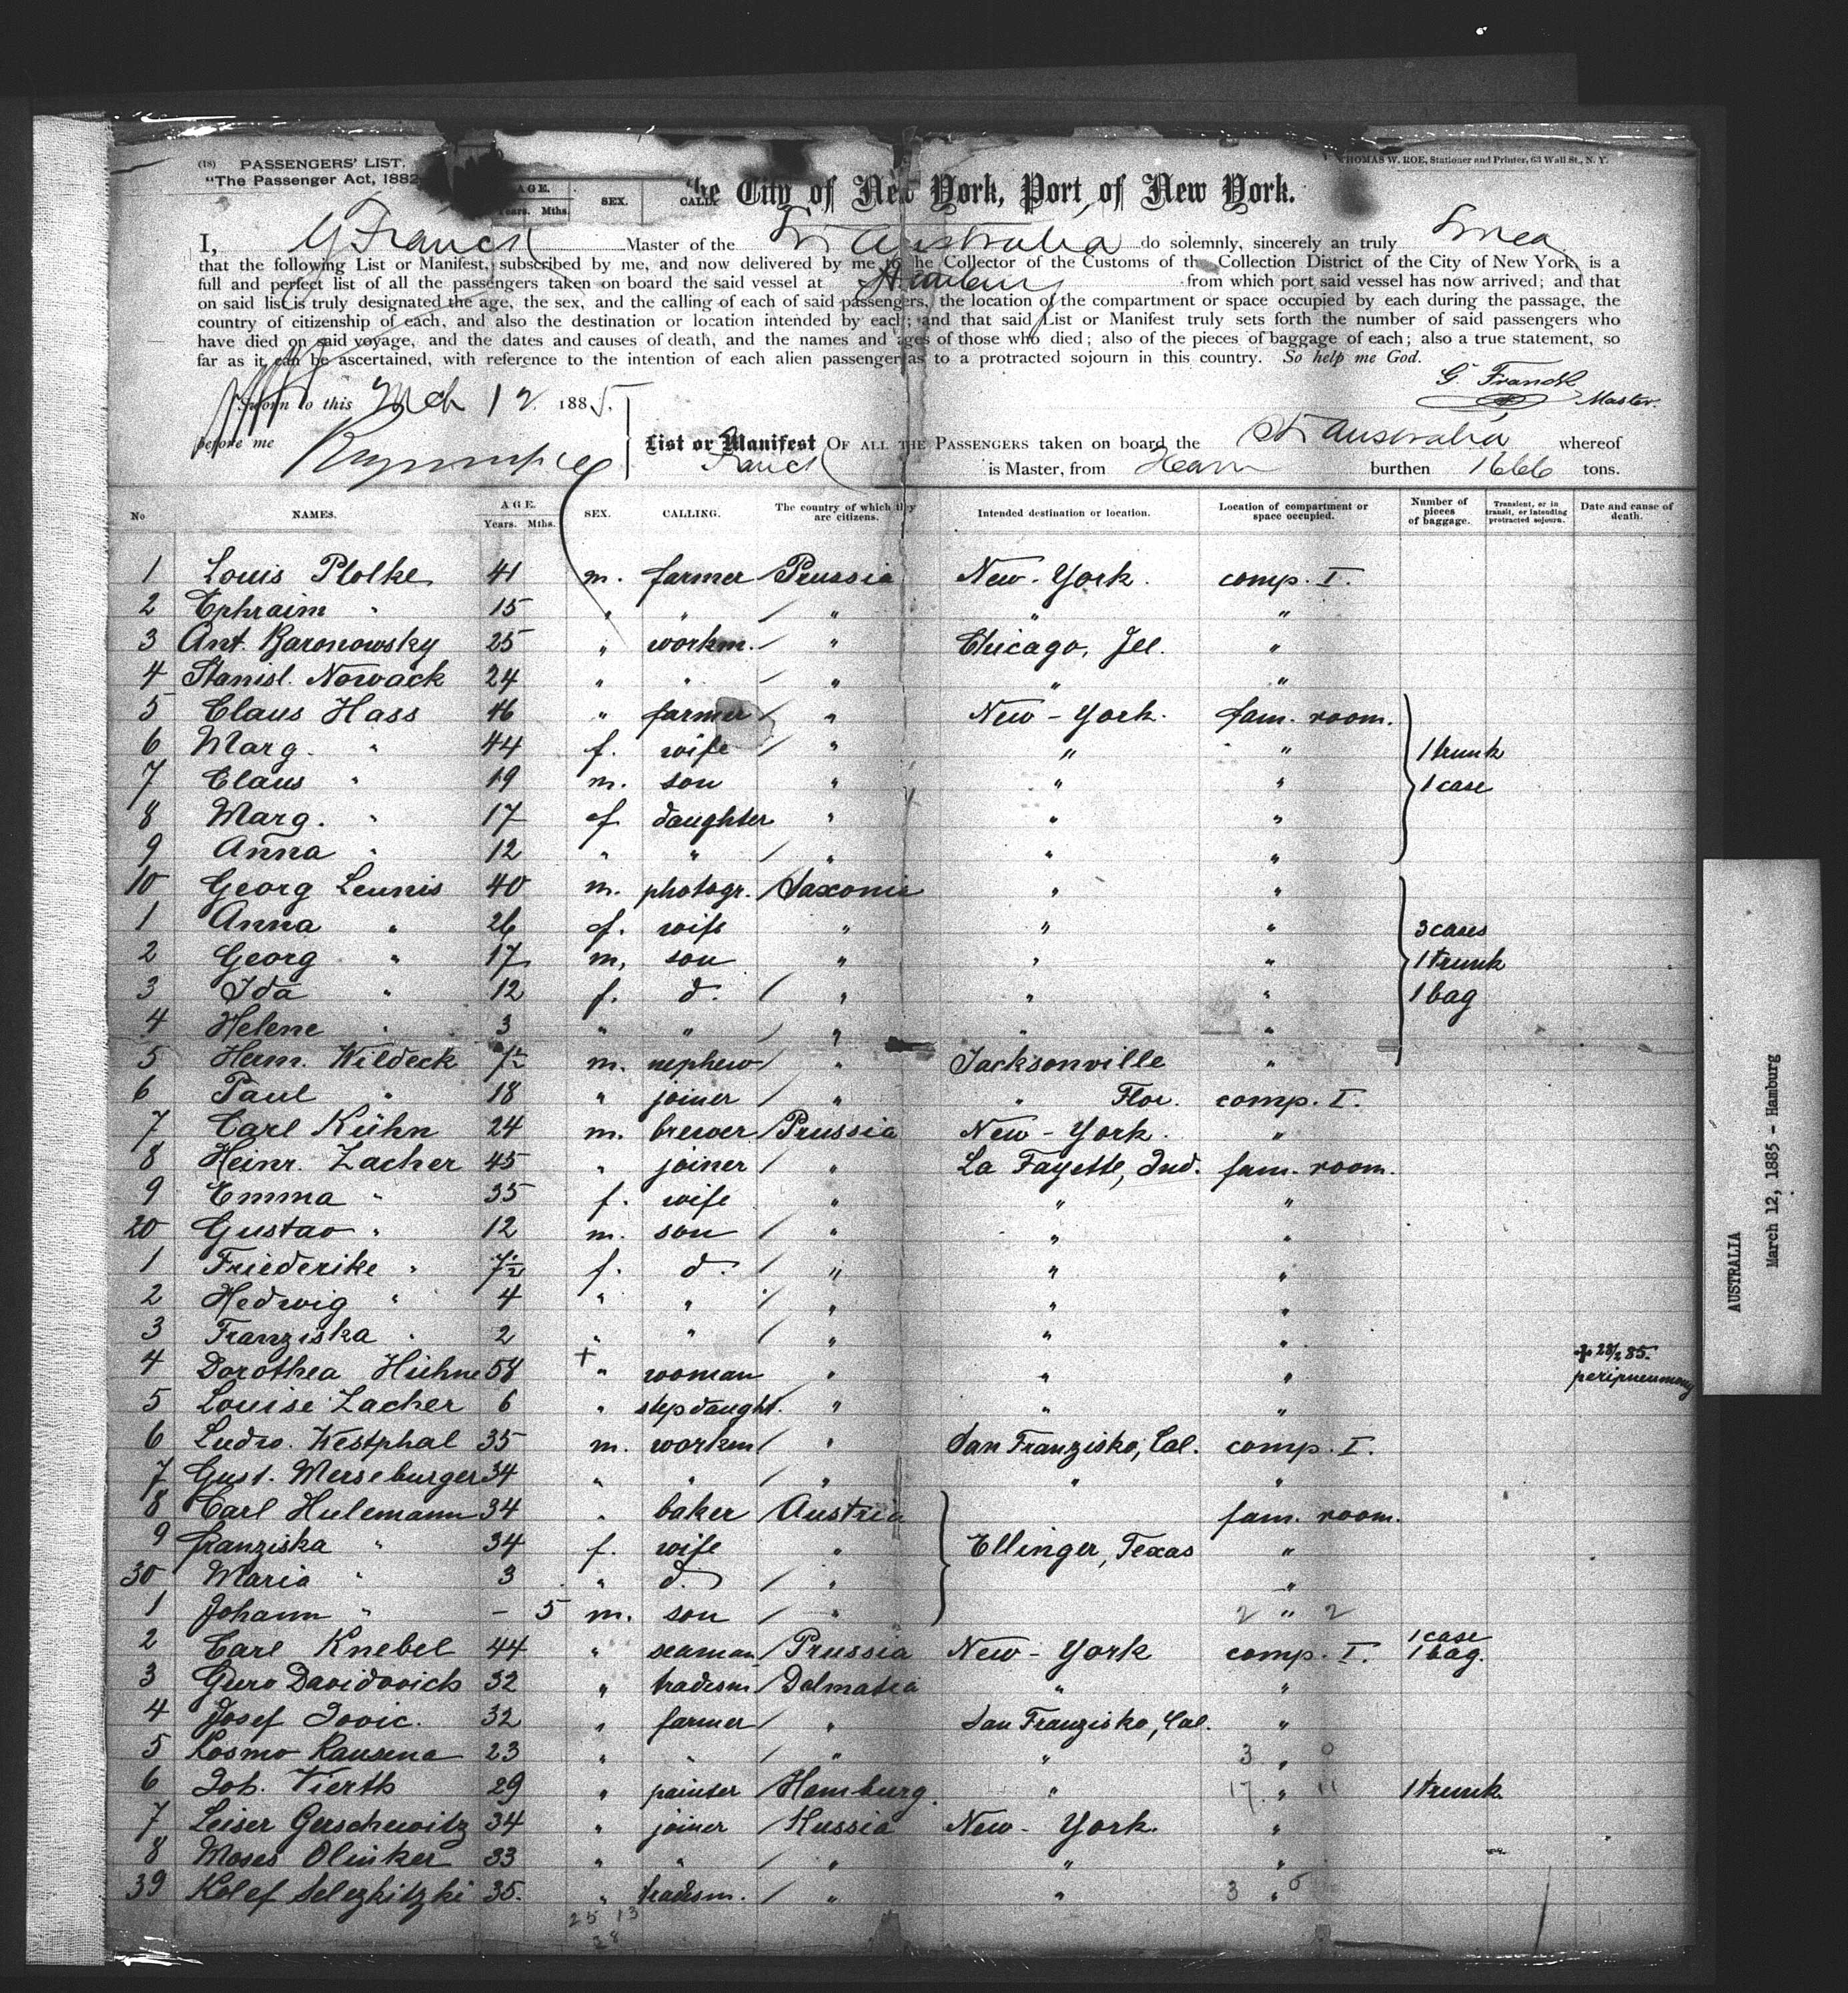 (18) PASSENGERS' LIST.
THOMAS W. ROE, Stationer and Printer, 63 Wall St., N. Y.
"The Passenger Act, 1882
AGE. Years. Mths. SEX. he City of New York, Port of New York.
I, G Franck Master of the Str Australia do solemnly, sincerely an truly Swear
that the following List or Manifest, subscribed by me, and now delivered by me to the Collector of the Customs of the Collection District of the City of New York, is a
full and perfect list of all the passengers taken on board the said vessel at Hamburg from which port said vessel has now arrived; and that
on said list is truly designated the age, the sex, and the calling of each of said passengers, the location of the compartment or space occupied by each during the passage, the
country of citizenship of each, and also the destination or location intended by each; and that said List or Manifest truly sets forth the number of said passengers who
have died on said voyage, and the dates and causes of death, and the names and ages of those who died; also of the pieces of baggage of each; also a true statement, so
far as it can be ascertained, with reference to the intention of each alien passenger as to a protracted sojourn in this country. So help me God.
G. Franck Master.
Sworn to this Mch 12 1885.
before me
List or Manifest OF ALL THE PASSENGERS taken on board the Str Australia whereof
Franck is Master, from Ham burthen 1666 tons.
No NAMES. AGE. Years. Mths. SEX. CALLING. The country of which they are citizens. Intended destination or location. Location of compartment or space occupied. Number of pieces of baggage. Transient, or in transit, or intending protracted sojourn. Date and cause of death.
1 Louis Plolke 41 m. farmer / Prussia New-York. comp. I.
2 Ephraim " 15 " " / " " "
3 Ant. Baronowsky 25 " workm. / " Chicago, Ill. "
4 Stanisl. Nowack 24 " " / " " "
5 Claus Hass 46 " farmer / " New-York. fam. room.
6 Marg. " 44 f. wife / " " " 1 trunk
7 Claus " 19 m. son " " " 1 case
8 Marg. " 17 f daughter " " "
9 Anna " 12 " " / " " "
10 Georg Leunis 40 m. photogr. / Saxonia " "
1 Anna " 26 f. wife " " " 3 cases
2 Georg " 17 m. son " " " 1 trunk
3 Ida " 12 f. d. / " " " 1 bag
4 Helene " 3 " " / " " "
5 Herm. Wildeck 7½ m. nephew / " Jacksonville "
6 Paul " 18 " joiner / " " Flor. comp. I.
7 Carl Kühn 24 m. brewer / Prussia New-York. "
8 Heinr. Zacher 45 " joiner / " La Fayette, Ind. fam. room.
9 Emma " 35 f. wife " " "
20 Gustav " 12 m. son / " " "
1 Friederike " 7½ f. d. / " " "
2 Hedwig " 4 " " / " " "
3 Franziska " 2 " " / " " "
4 Dorothea Hühne 58 + " woman " " " + 28/2 85. peripneumony
5 Louise Zacher 6 " stepdaught. " " "
6 Ludw. Westphal 35 m. workm / " San Franzisko, Cal. comp. I.
7 Gust. Merseburger 34 " " / " " "
8 Carl Hulemann 34 " baker / Austria fam. room.
9 Franziska " 34 f. wife " Ellinger, Texas "
30 Maria " 3 " d. / " "
1 Johann " - 5 m. son / " 2 " 2
2 Carl Knebel 44 " seaman / Prussia New-York comp. I. 1 case 1 bag.
3 Guro Davidovich 32 " tradesm / Dalmatia " "
4 Josef Jovic. 32 " farmer / " San Franzisko, Cal. "
5 Kosmo Rausena 23 " " / " " 3 " 0
6 Joh. Vierth 29 " painter / Hamburg. " 17 " 11 1 trunk.
7 Leiser Gerschewitz 34 " joiner / Russia New-York. "
8 Moses Olinker 33 " " / " " "
39 35. " tradesm. / " " 3 " 0
25 13
38
AUSTRALIA
March 12, 1885 - Hamburg